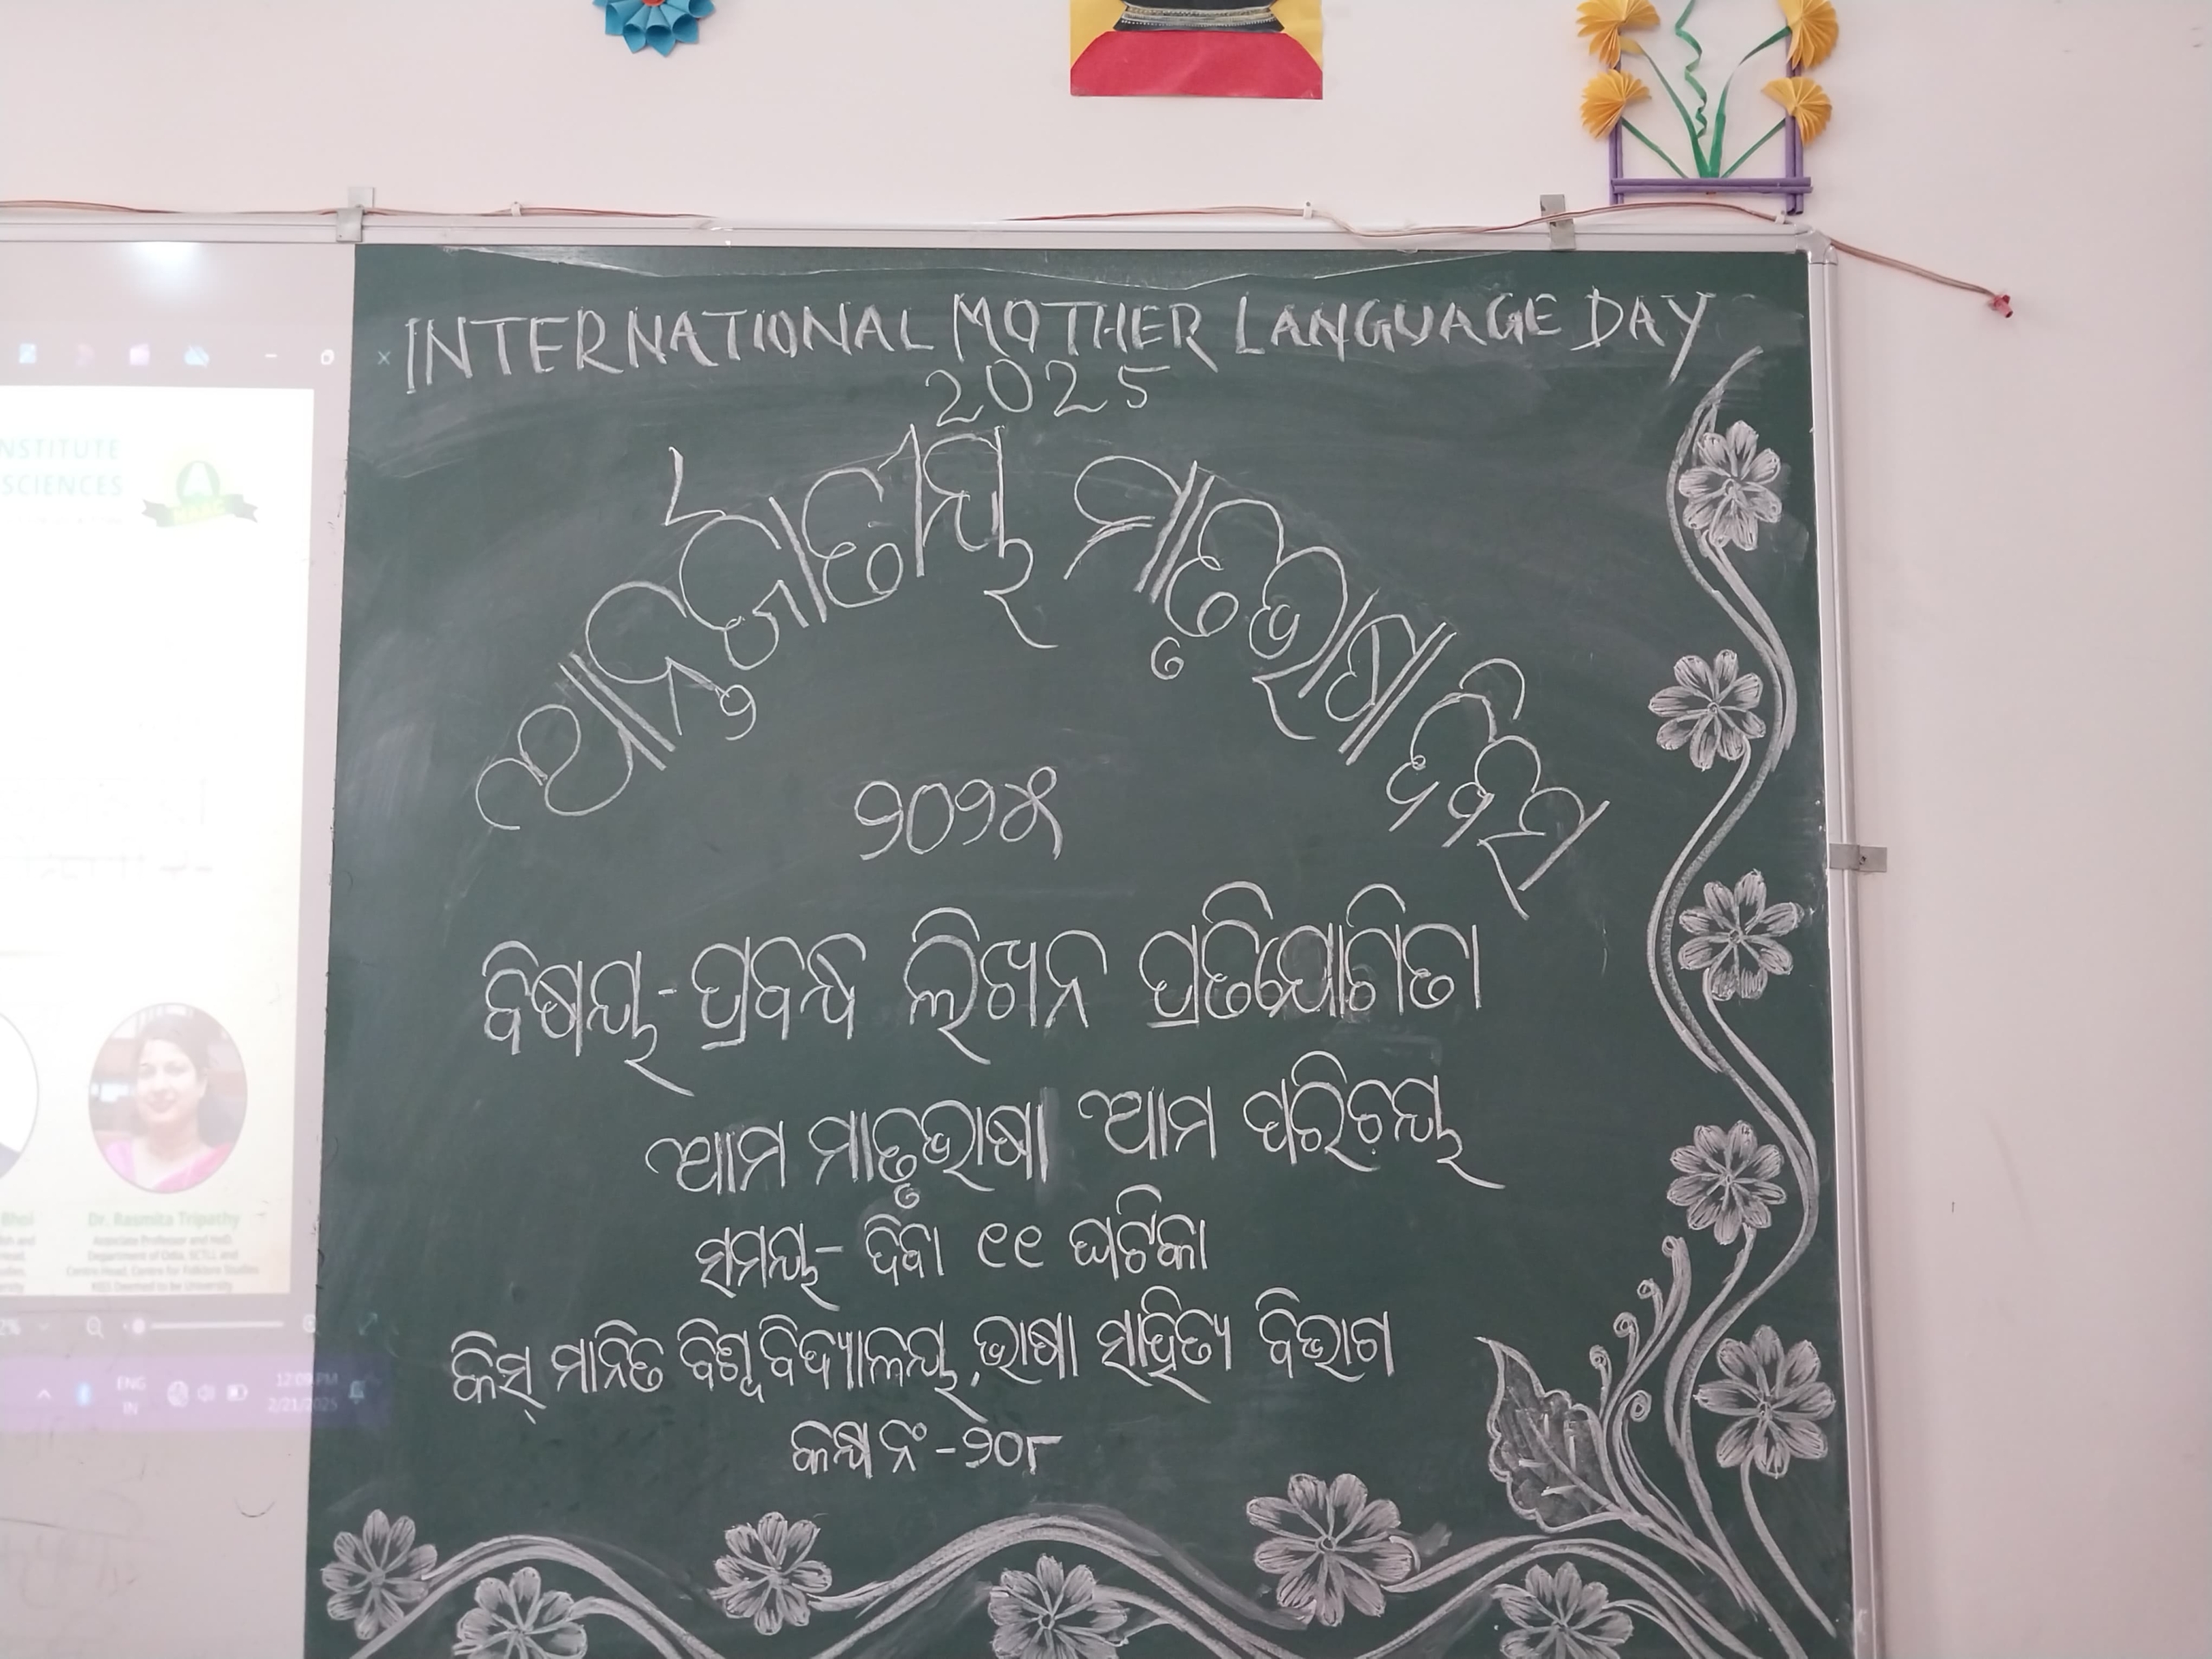 INTERNATIONAL MOTHER LANGUAGE DAY
2025
ଆନ୍ତର୍ଜାତୀୟ ମାତୃଭାଷା ଦିବସ
୨୦୨୫
ବିଷୟ-ପ୍ରବନ୍ଧ ଲିଖନ ପ୍ରତିଯୋଗିତା
ଆମ ମାତୃଭାଷା ଆମ ପରିଚୟ
ସମୟ- ଦିବା ୧୧ ଘଟିକା
କିସ୍ ମାନିତ ବିଶ୍ୱବିଦ୍ୟାଳୟ, ଭାଷା ସାହିତ୍ୟ ବିଭାଗ
କକ୍ଷ ନଂ-୨୦୮
NSTITUTE
SCIENCES
Bhoi
Dr. Rasmita Tripathy
Associate Professor and HoD,
Department of Odia, SCTLL and
Centre Head, Centre for Folklore Studies
KISS Deemed to be University
ENG
IN
12:09 PM
2/21/2025